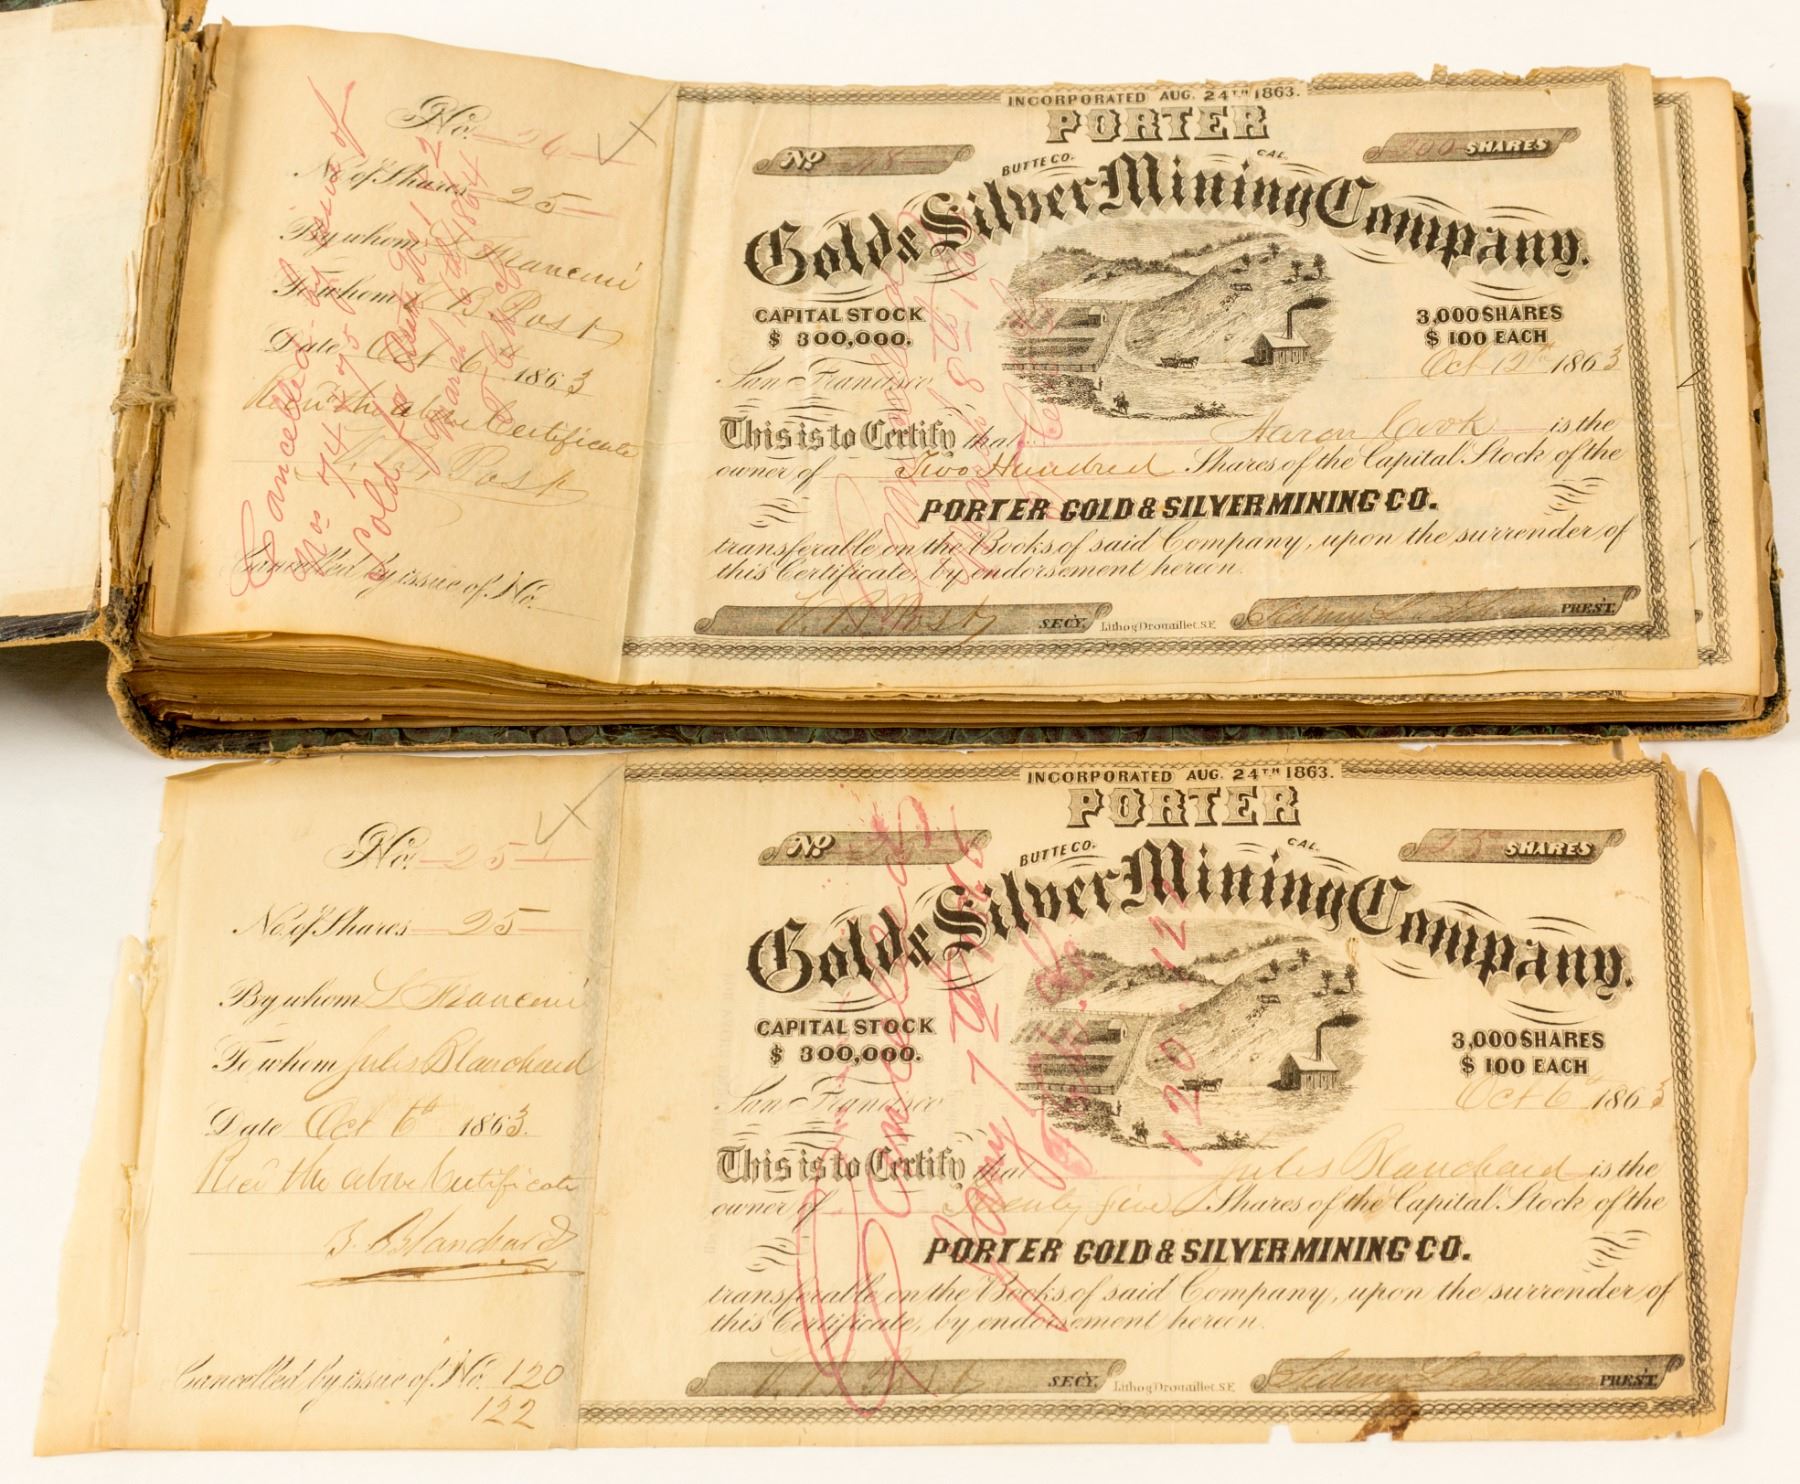 No. 26
No. of Shares 25
By whom L Franconi
To whom V. B. Post
Date Oct 6th 1863
Rec'd the above Certificate
V. B. Post
Cancelled by issue of No.
Cancelled by issue of
Nos 74 75
Sold for Asst No 1
March 1864
INCORPORATED AUG. 24TH 1863.
PORTER
No 48
BUTTE CO. CAL.
200 SHARES
Gold & Silver Mining Company.
CAPITAL STOCK
$ 300,000.
3,000 SHARES
$ 100 EACH
San Francisco Oct 12th 1863
This is to Certify that Aaron Cook is the
owner of Two Hundred Shares of the Capital Stock of the
PORTER GOLD & SILVER MINING CO.
transferable on the Books of said Company, upon the surrender of
this Certificate, by endorsement herein.
V. B. Post SECY. Lithog Drouaillet S.F. Sidney L. Johnson PREST.
Cancelled
March 8th
No. 25
No. of Shares 25
By whom L Franconi
To whom Jules Blanchard
Date Oct 6th 1863.
Rec'd the above Certificate
J. Blanchard
Cancelled by issue of No. 120
122
INCORPORATED AUG. 24TH 1863.
PORTER
No
BUTTE CO. CAL.
25 SHARES
Gold & Silver Mining Company.
CAPITAL STOCK
$ 300,000.
3,000 SHARES
$ 100 EACH
San Francisco Oct 6th 1863
This is to Certify that Jules Blanchard is the
owner of Twenty five Shares of the Capital Stock of the
PORTER GOLD & SILVER MINING CO.
transferable on the Books of said Company, upon the surrender of
this Certificate, by endorsement herein.
V. B. Post SECY. Lithog Drouaillet S.F. Sidney L. Johnson PREST.
Cancelled
May 7
120. 122